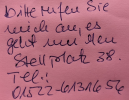 bitte rufen Sie
mich an, es
geht um den
Stellplatz 38.
Tel.:
01522-6131656